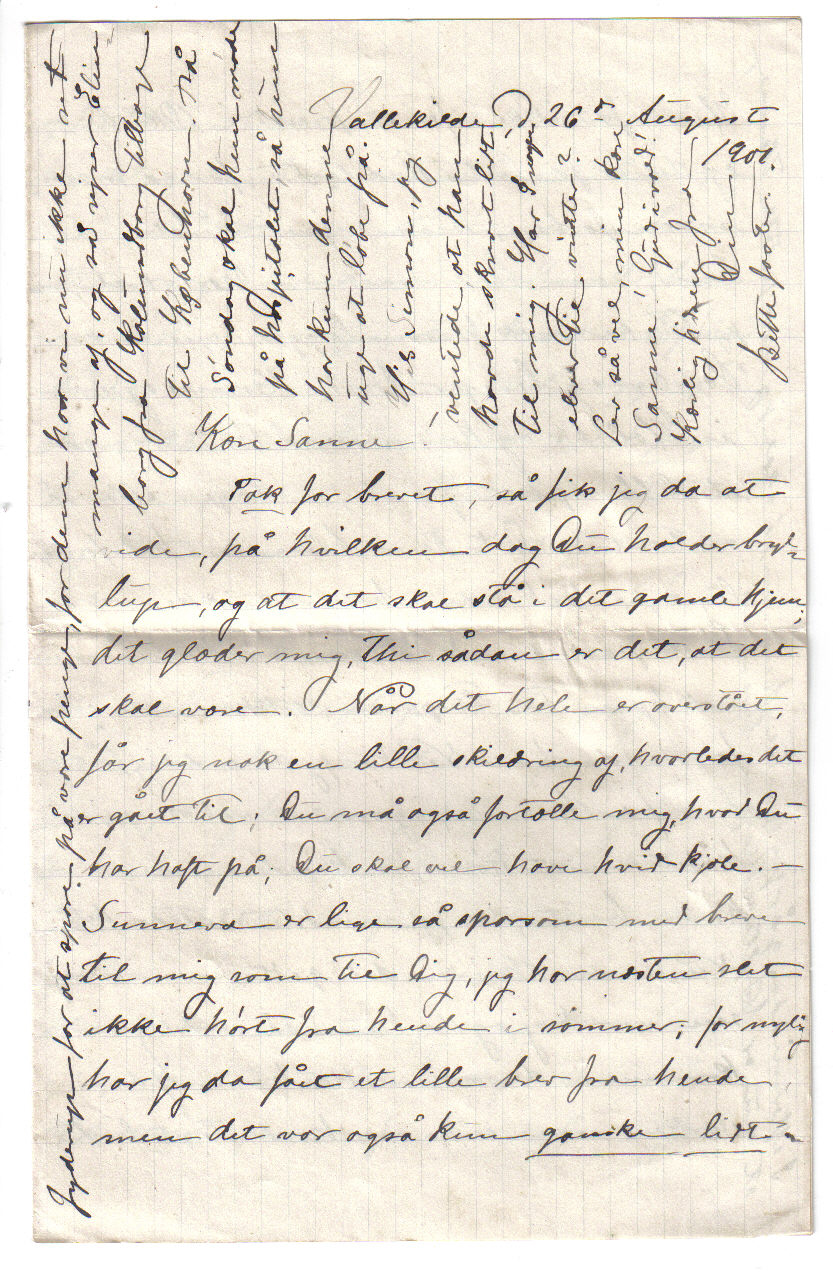 Vallekilde, d. 26d August
1901.
Kære Sanne!
Tak for brevet, så fik jeg da at
vide, på hvilken dag Du holder bryl-
lup, og at det skal stå i det gamle hjem;
det glæder mig, thi sådan er det, at det
skal være. Når det hele er overstået,
får jeg nok en lille skildring af, hvorledes det
er gået til; Du må også fortælle mig, hvad Du
har haft på; Du skal vel have hvid kjole. –
Sunneva er lige så sparsom med breve
til mig som til Dig, jeg har næsten slet
ikke hørt fra hende i sommer; for nylig
har jeg da fået et lille brev fra hende,
men det var også kun ganske lidt.
Jyderup for at spare på vore penge, for dem har vi nu ikke ret
mange af, og så rejser Elin-
borg fra Kalundborg tilbage
til København. På
Søndag skal hun møde
på hospitalet, så nu
har kun denne
uge at løbe på.
Hils Simon, jeg
ventede at han
havde skrevet lidt
til mig. Har I noget
eller til vinter?
Lev så vel, min kære
Sanne! Gud i vold!
Kærlig hilsen fra
Din
Bitte faster.